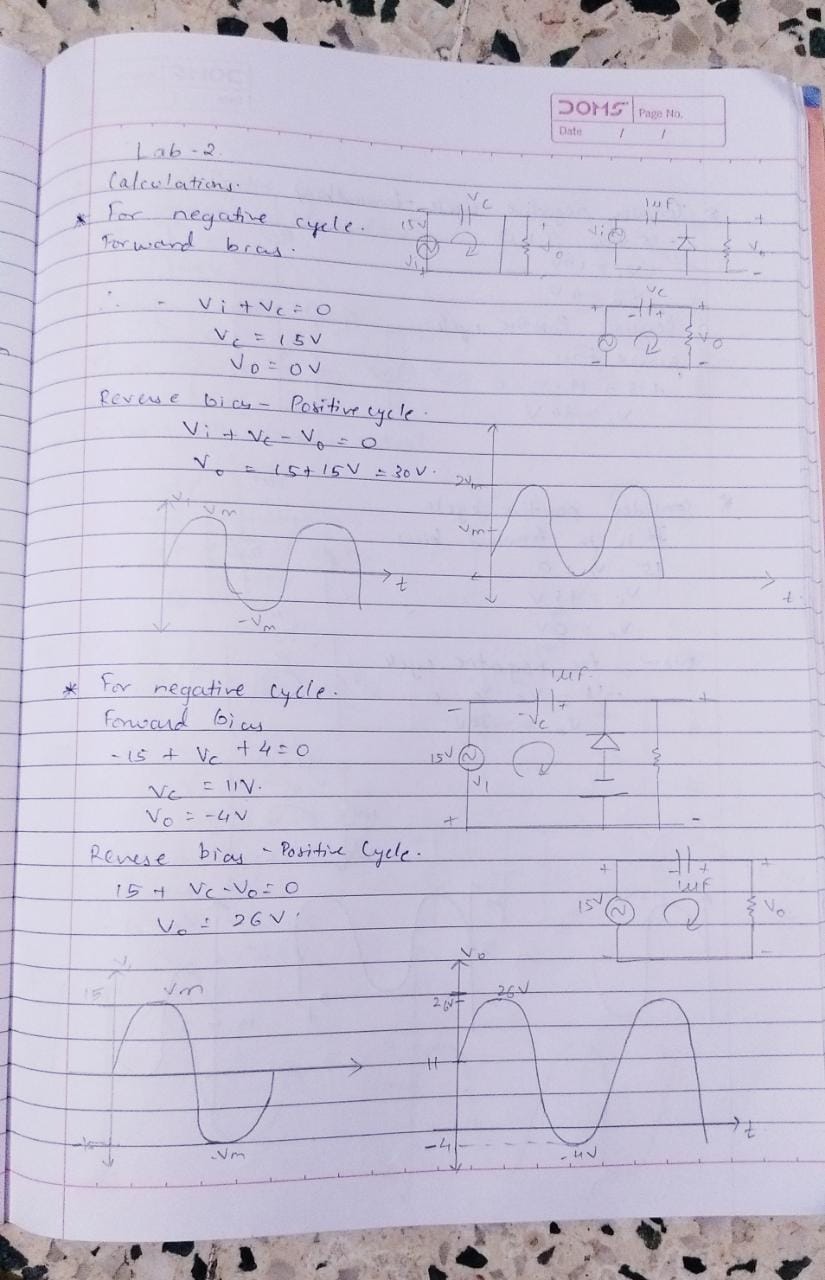 DOMS Page No.
Date / /
Lab-2.
Calculations.
* For negative cycle.
Forward bias.
15V Vi Vc Vo
Vi 1uF Vo
∴ - Vi + Vc = 0
Vc = 15V
Vo = 0V
Vc Vo
Reverse bias - Positive cycle.
Vi + Vc - Vo = 0
Vo = 15+15V = 30V.
Vi Vm t -Vm
2Vm Vm t
* For negative cycle.
Forward bias
-15 + Vc + 4 = 0
Vc = 11V.
Vo = -4V
1uF
Vc
15V Vi
Reverse bias - Positive Cycle.
15 + Vc - Vo = 0
Vo = 26V.
1uF
15V Vo
15 Vm
-Vm
Vo
26V 26V
11
-4 -4V t